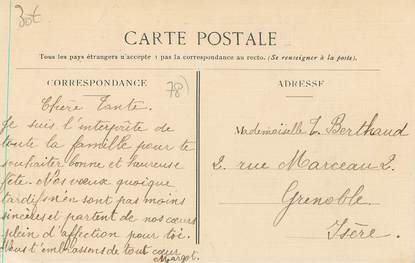 30t
CARTE POSTALE
Tous les pays étrangers n'accepte t pas la correspondance au recto. (Se renseigner à la poste).
CORRESPONDANCE
78)
Chère Tante.
Je suis l'interprête de
toute la famille pour te
souhaiter bonne et heureuse
fête. Nos vœux quoique
tardifs n'en sont pas moins
sincères et partent de nos cœurs
plein d'affection pour toi.
Nous t'embrassons de tout cœur
Margot.
ADRESSE
Mademoiselle T. Berthaud
2. rue Marceau 2.
Grenoble
Isère.